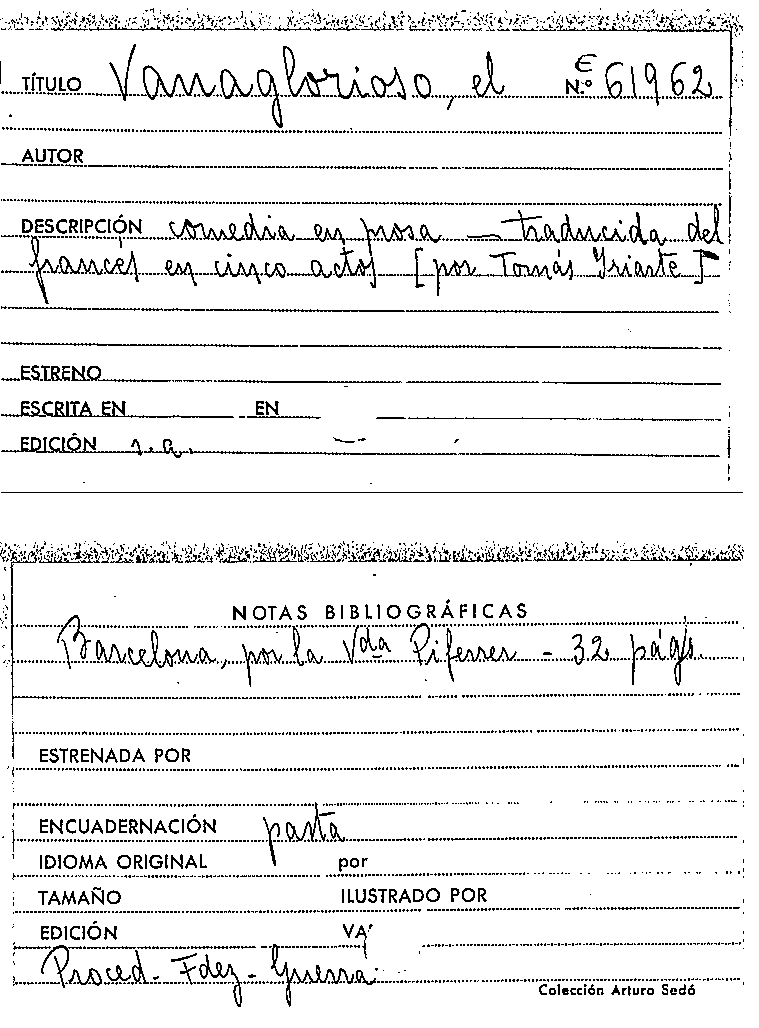 TÍTULO Vanaglorioso, el N.º € 61962
AUTOR
DESCRIPCIÓN comedia en prosa — traducida del
francés en cinco actos [por Tomás Yriarte]
ESTRENO
ESCRITA EN EN
EDICIÓN s.a.
NOTAS BIBLIOGRÁFICAS
Barcelona, por la Vda Piferrer - 32 págs.
ESTRENADA POR
ENCUADERNACIÓN pasta
IDIOMA ORIGINAL por
TAMAÑO ILUSTRADO POR
EDICIÓN VA
Proced. Fdez-Guerra
Colección Arturo Sedó